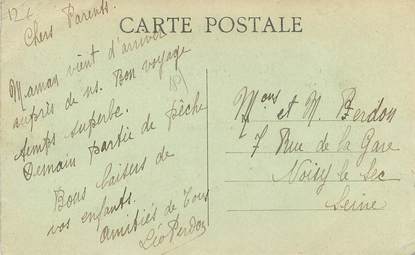 CARTE POSTALE
Chers Parents.
Maman vient d'arriver
auprès de ns. Bon voyage
temps superbe.
Demain partie de pêche
Bons baisers de
vos enfants.
Amitiés de Tous
Léo Perdon
et M. Perdon
7 Rue de la Gare
Noisy le Sec
Seine